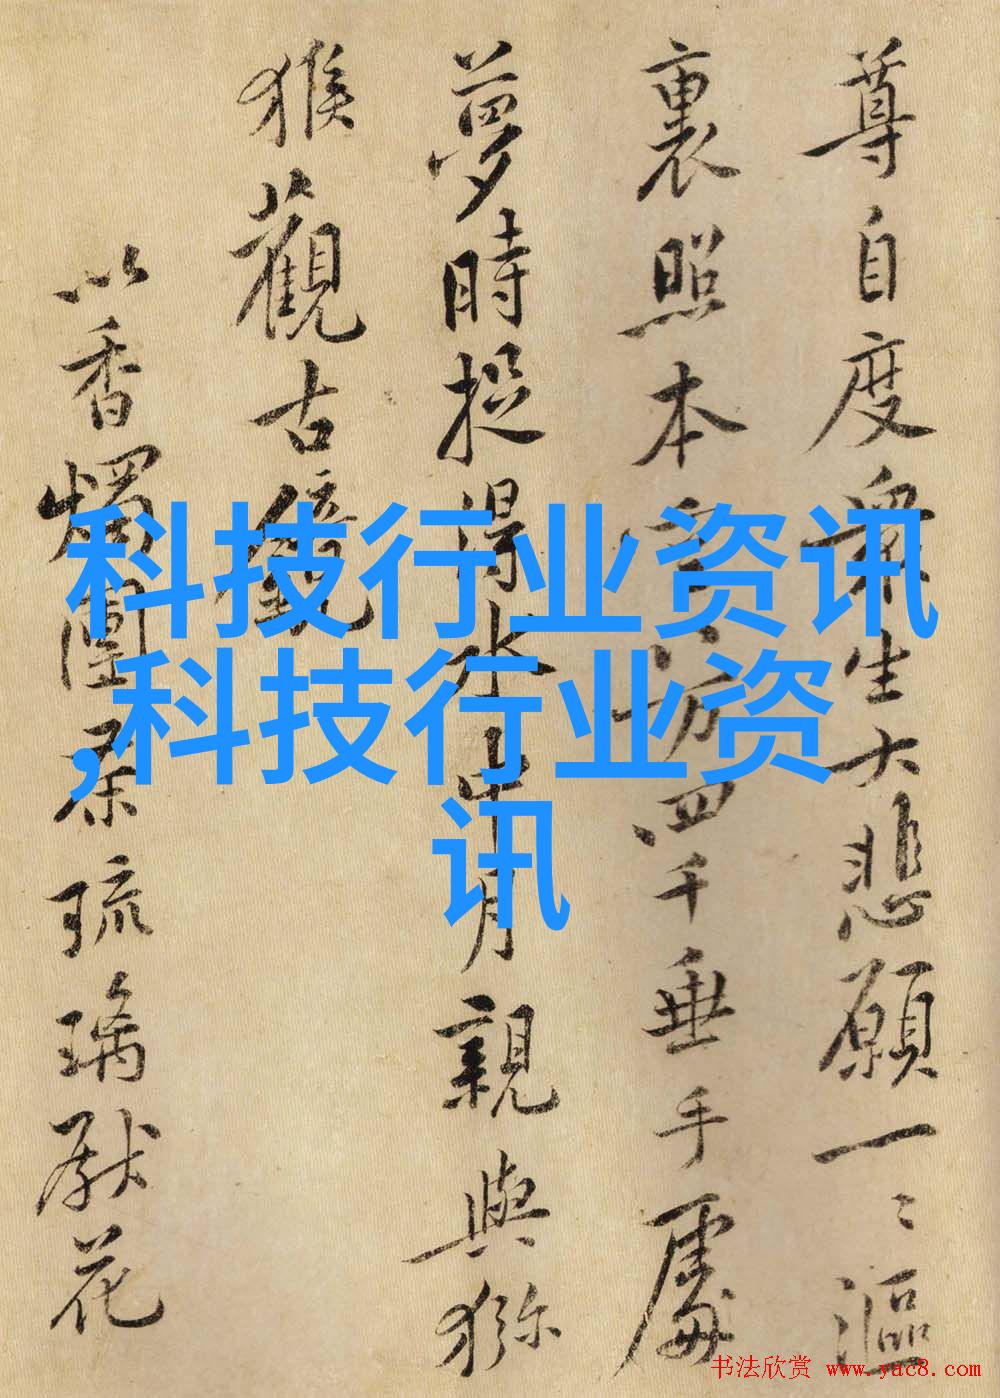 尊自度眾生大悲願一〻漚
裏照本八万四千垂手處
夢時捉得水中月親與獼
猴觀古鏡
以香燭琉璃獻花
科技行业资讯
,科技行业资
讯
书法欣赏 www.yac8.com